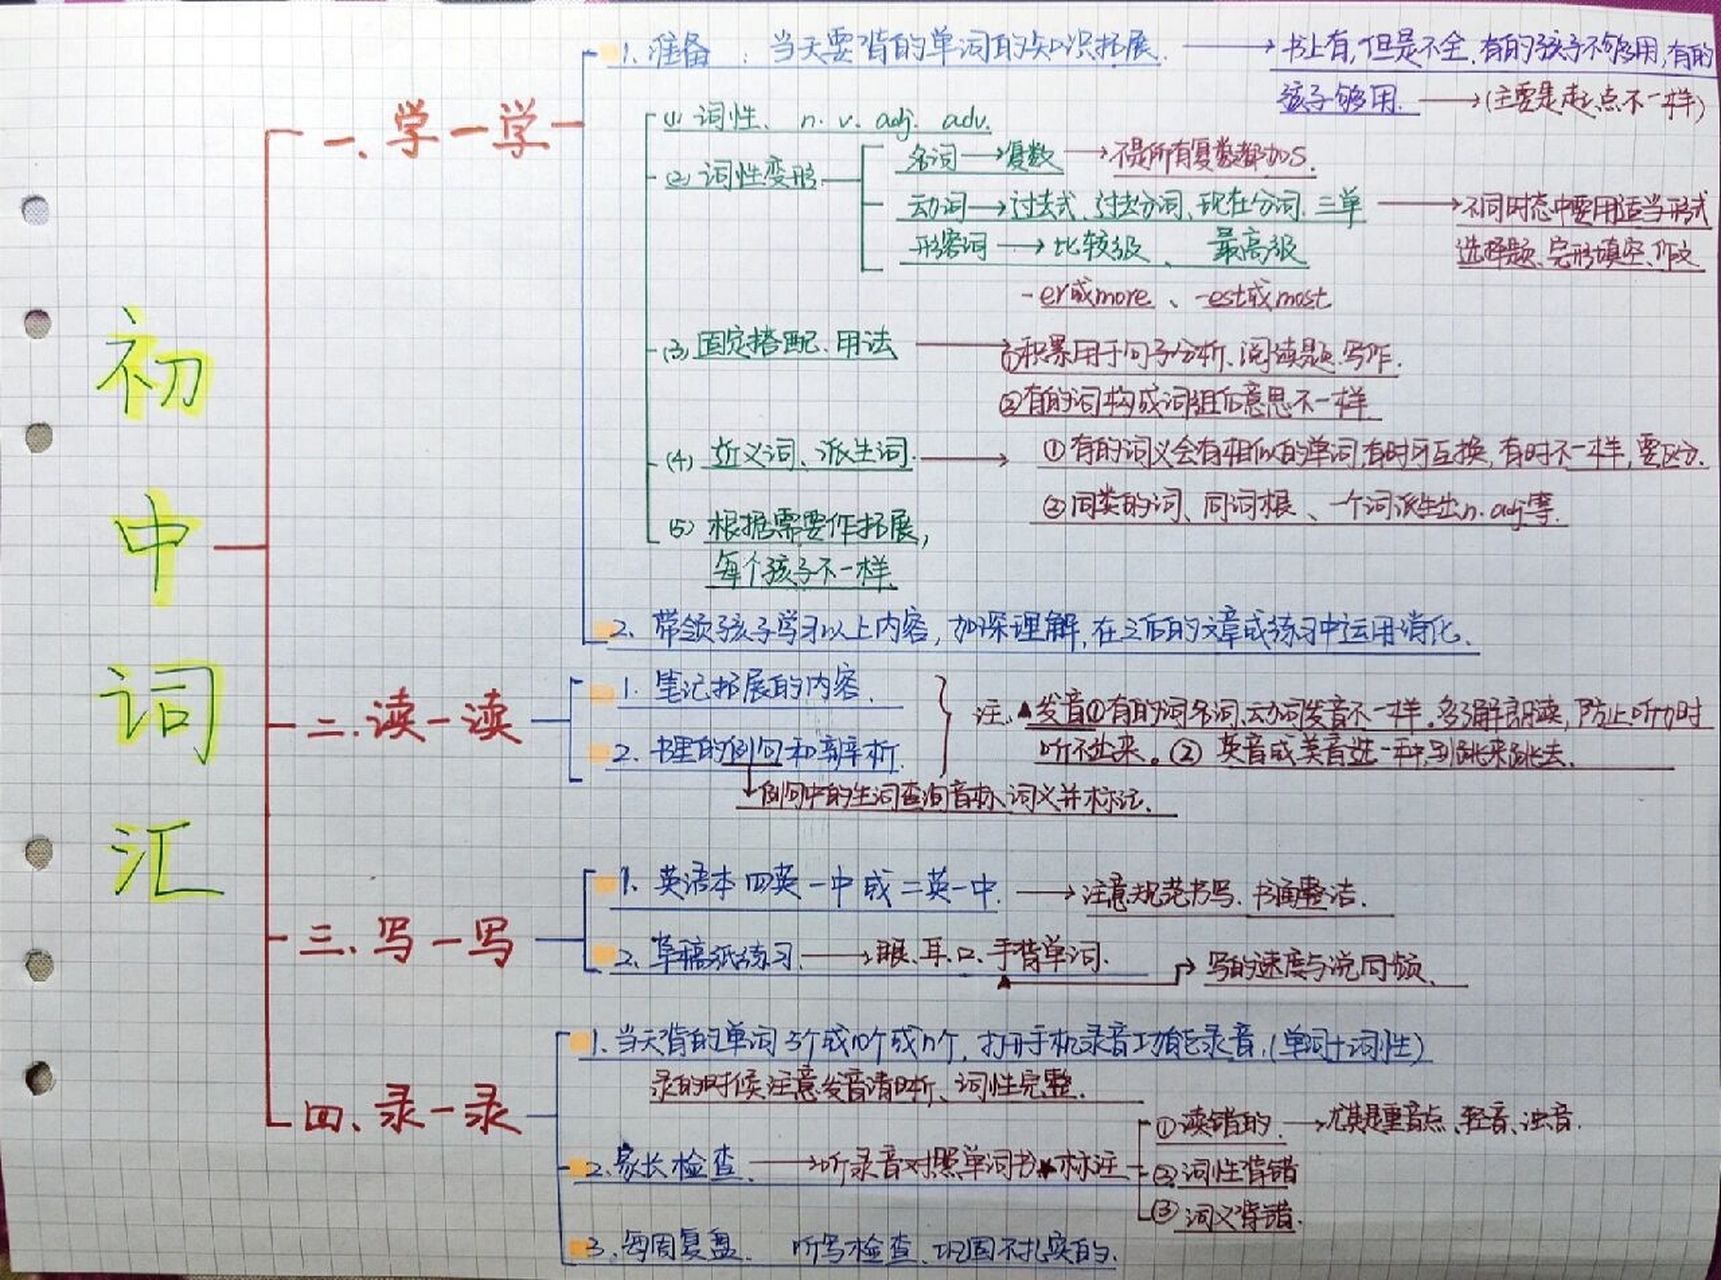 初中词汇
一.学一学
1.准备：当天要背的单词的知识拓展.
书上有,但是不全.有的孩子不够用,有的
孩子够用.
(主要是起点不一样)
(1)词性、n. v. adj. adv.
(2)词性变形
名词→复数→不是所有复数都加s.
动词→过去式、过去分词、现在分词、三单→不同时态中要用适当形式
选择题、完形填空、作文
形容词→比较级、最高级
-er或more、-est或most
(3)固定搭配、用法
①积累用于句子分析、阅读题、写作.
②有的词构成词组后意思不一样
(4)近义词、派生词.
①有的词义会有相似的单词,有时可互换,有时不一样,要区分.
②同类的词、同词根、一个词派生出n. adj等.
(5)根据需要作拓展,
每个孩子不一样.
2.带领孩子学习以上内容,加深理解,在之后的文章或练习中运用消化.
二.读一读
1.笔记拓展的内容.
2.书里的例句和辨析.
例句中的生词查询音标、词义并标注.
注.▲发音①有的词名词、动词发音不一样.多了解朗读,防止听力时
听不出来。②英音或美音选一种,别跳来跳去.
三.写一写
1.英语本 四英一中或二英一中.→注意规范书写.书面整洁.
2.草稿纸练习→眼、耳、口、手背单词.
写的速度与说同频.
四、录一录
1.当天背的单词5个或10个或n个,打开手机录音功能录音.(单词+词性)
录的时候注意发音清晰、词性完整.
2.家长检查.→听录音对照单词书 标注
①读错的.→尤其是重音点、轻音、浊音.
②词性背错
③词义背错.
3.每周复盘. 听写检查、巩固不扎实的.